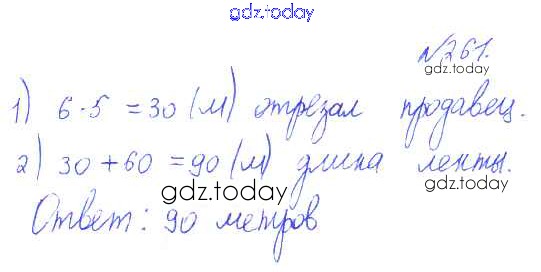 gdz.today
№261.
gdz.today
1) 6·5 = 30 (м) отрезал продавец.
2) 30 + 60 = 90 (м) длина ленты.
gdz.today
gdz.today
Ответ: 90 метров